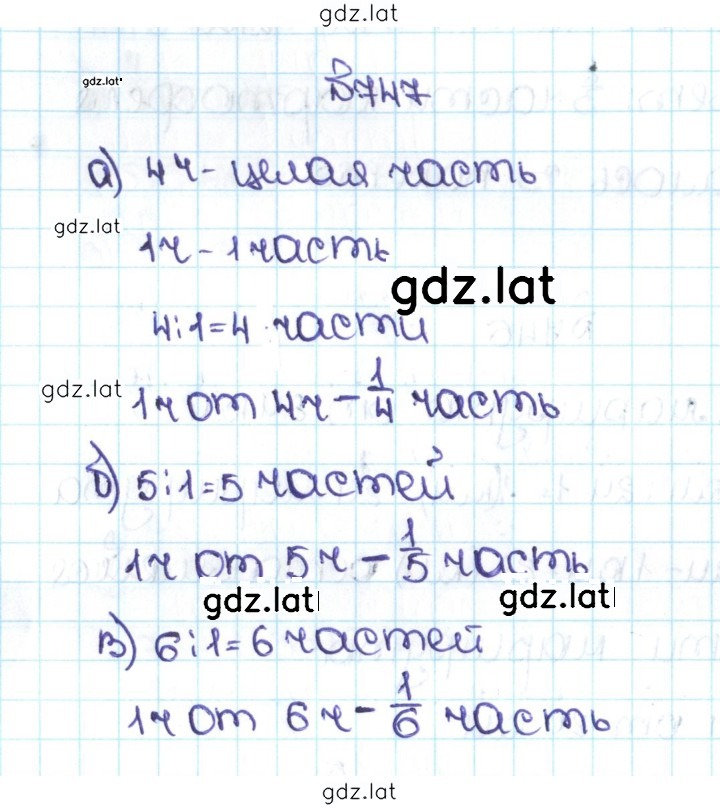 gdz.lat
gdz.lat
В747
а) 4ч - целая часть
gdz.lat
1ч - 1 часть
gdz.lat
4:1=4 части
gdz.lat
1ч от 4ч - 1/4 часть
б) 5:1=5 частей
1ч от 5ч - 1/5 часть
gdz.lat
gdz.lat
в) 6:1=6 частей
1ч от 6ч - 1/6 часть
gdz.lat